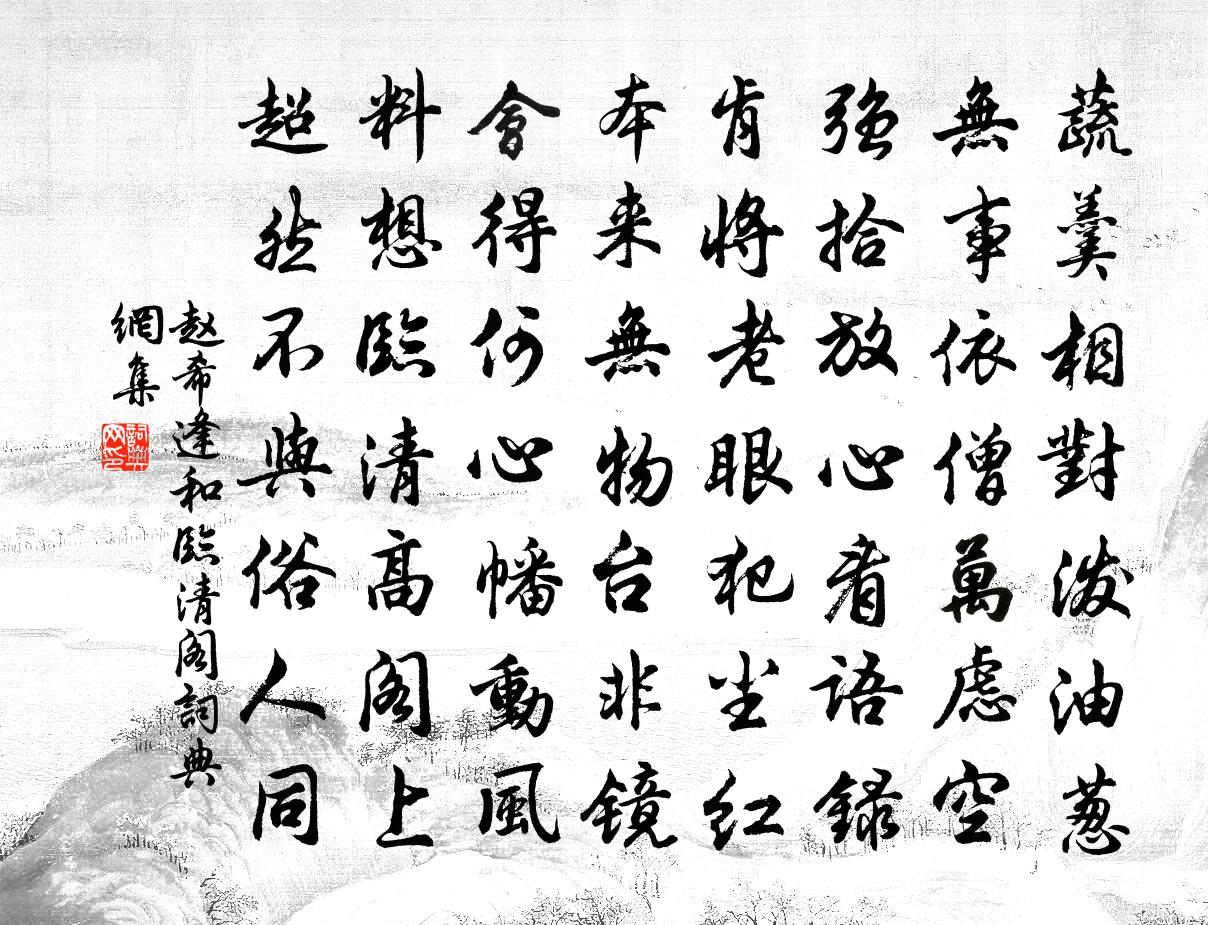 蔬羹相對泼油葱
無事依僧萬虑空
强拾放心看语録
肯將老眼犯尘红
本来無物台非镜
會得何心幡動風
料想臨清高阁上
超然不與俗人同
赵希逢和臨清阁詞典
網集